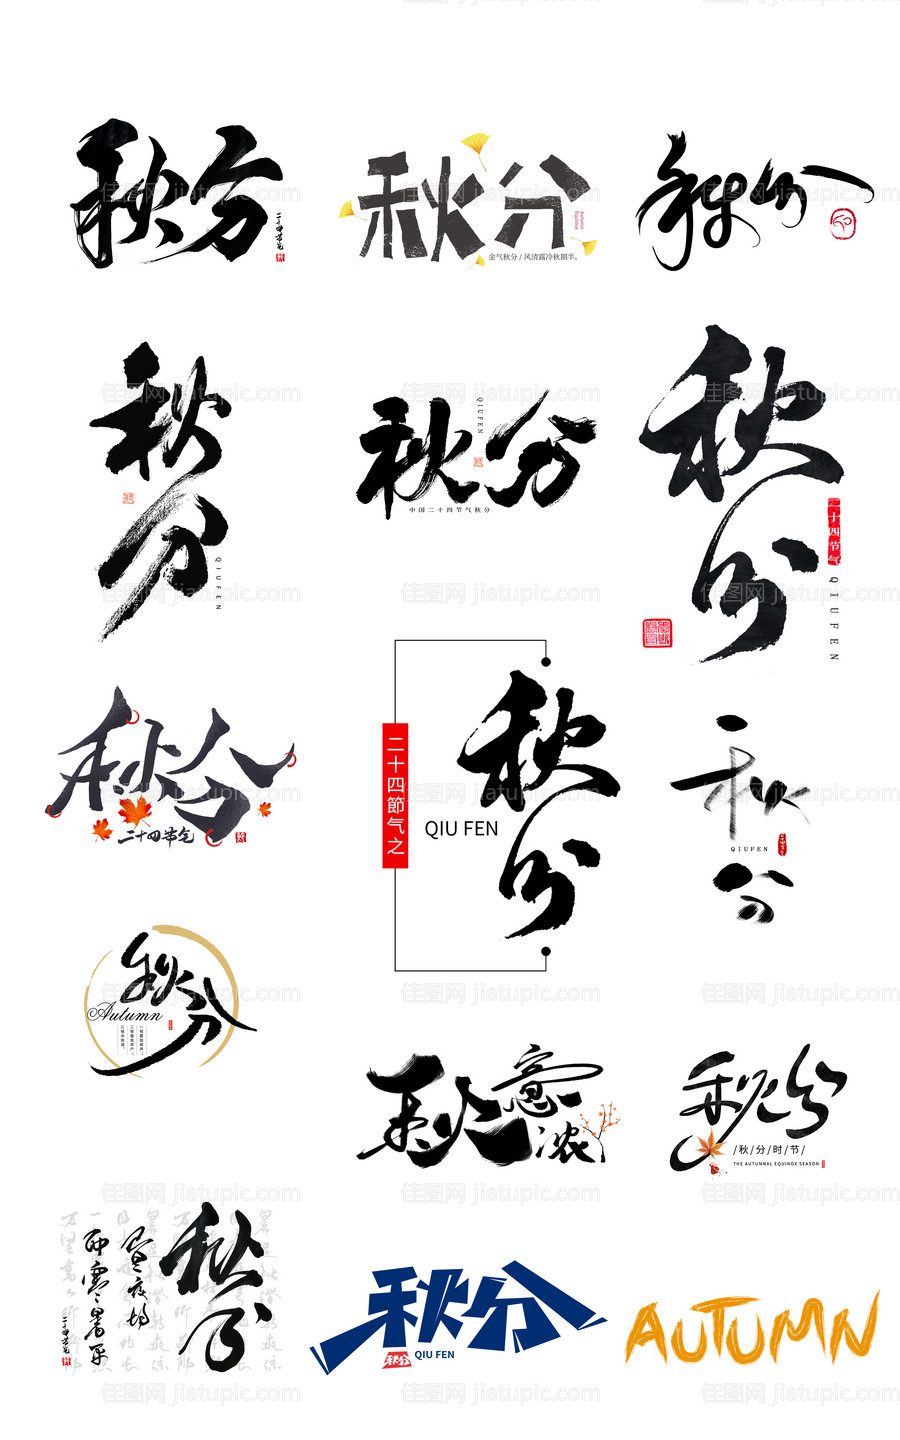 秋分
二十四节气
秋分
Autumn Equinox
金气秋分 / 风清露冷秋期半。
秋分
秋分
QIUFEN
秋分
QIUFEN
中国二十四节气秋分
秋分
二十四节气
QIUFEN
秋分
二十四节气
二十四節气之
QIU FEN
秋分
秋分
QIUFEN
秋分
Autumn
秋意浓
秋分
/秋/分/时/节/
THE AUTUMNAL EQUINOX SEASON
秋分
昼夜均
而寒暑平
二十四节气
秋分
秋分
QIU FEN
AUTUMN
佳图网 jiatupic.com